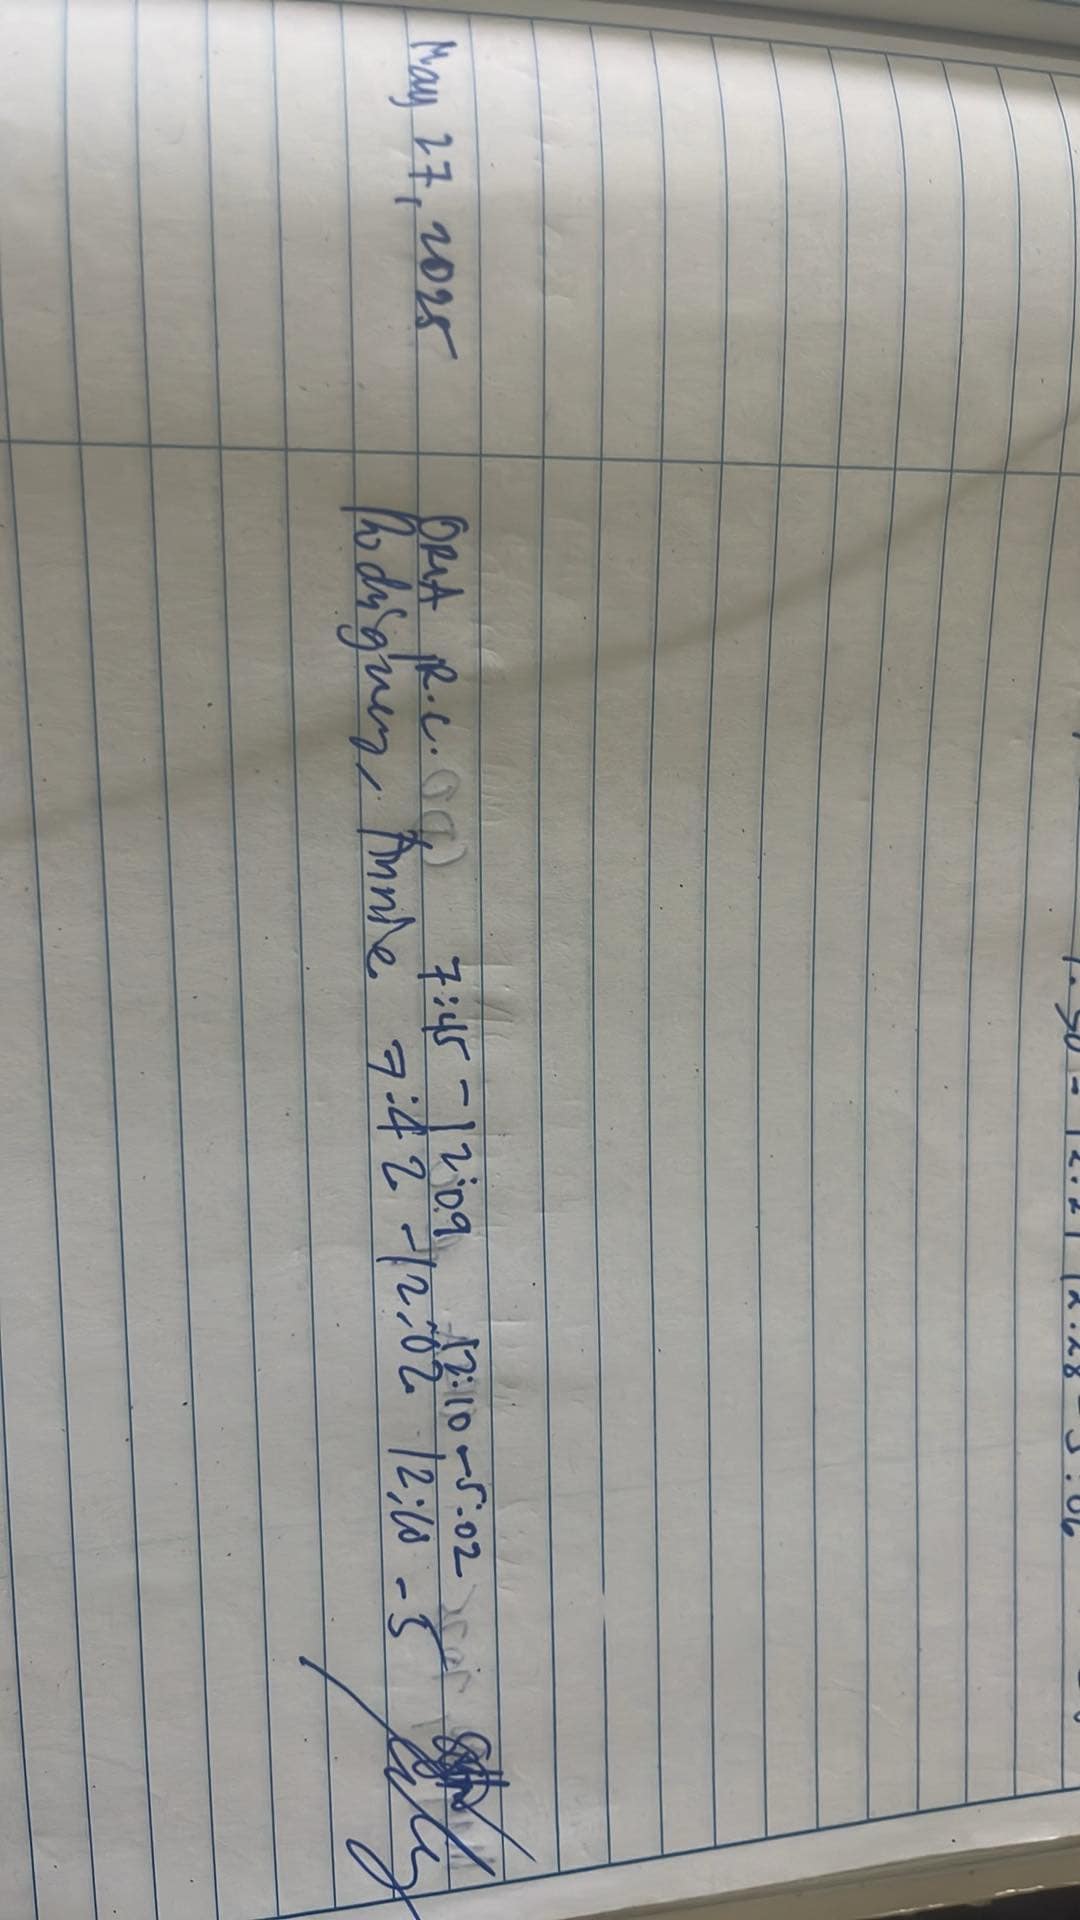 May 27, 2025
ORIA R.C. 7:45 - 12:09 12:10 - 5:02
Rodriguez, Annie 7:42 - 12:02 12:10 - 5